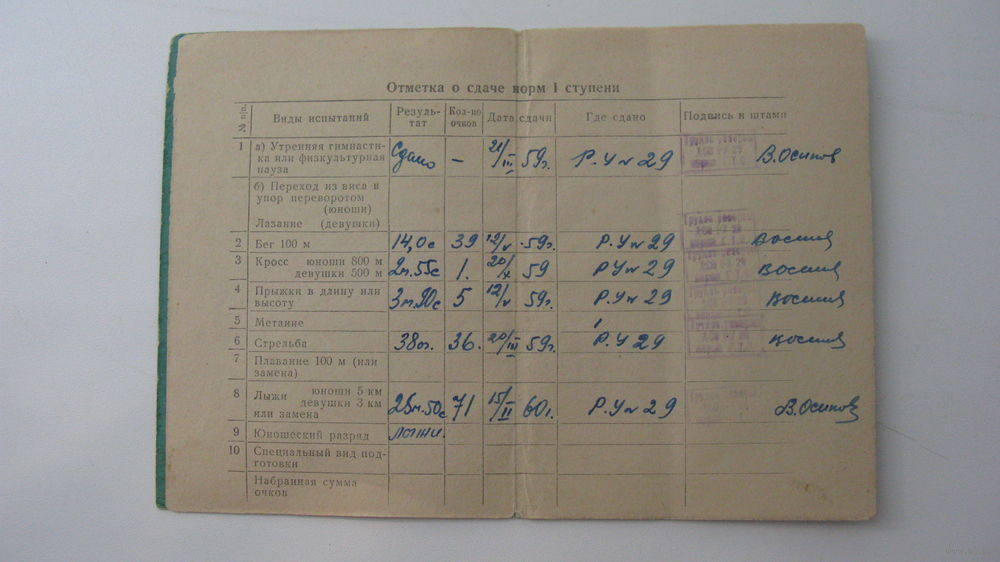 Отметка о сдаче норм I ступени
№ п/п. Виды испытаний Резуль-тат Кол-во очков Дата сдачи Где сдано Подпись и штамп
1 а) Утренняя гимнасти-
ка или физкультурная
пауза Сдано — 21/III 59г. Р.У № 29 В.Осипов
б) Переход из виса в
упор переворотом
(юноши)
Лазание (девушки)
2 Бег 100 м 14,0с 39 12/V 59г. Р.У № 29
3 Кросс юноши 800 м
девушки 500 м 2м.55с 1. 20/X 59 Р У № 29
4 Прыжки в длину или
высоту 3м.90с 5 12/V 59г. Р.У № 29
5 Метание
6 Стрельба 38о. 36. 20/III 59г. Р.У 29
7 Плавание 100 м (или
замена)
8 Лыжи юноши 5 км
девушки 3 км
или замена 28м.50с 71 15/II 60г. Р.У № 29 В.Осипов
9 Юношеский разряд лыжи.
10 Специальный вид под-
готовки
Набранная сумма
очков